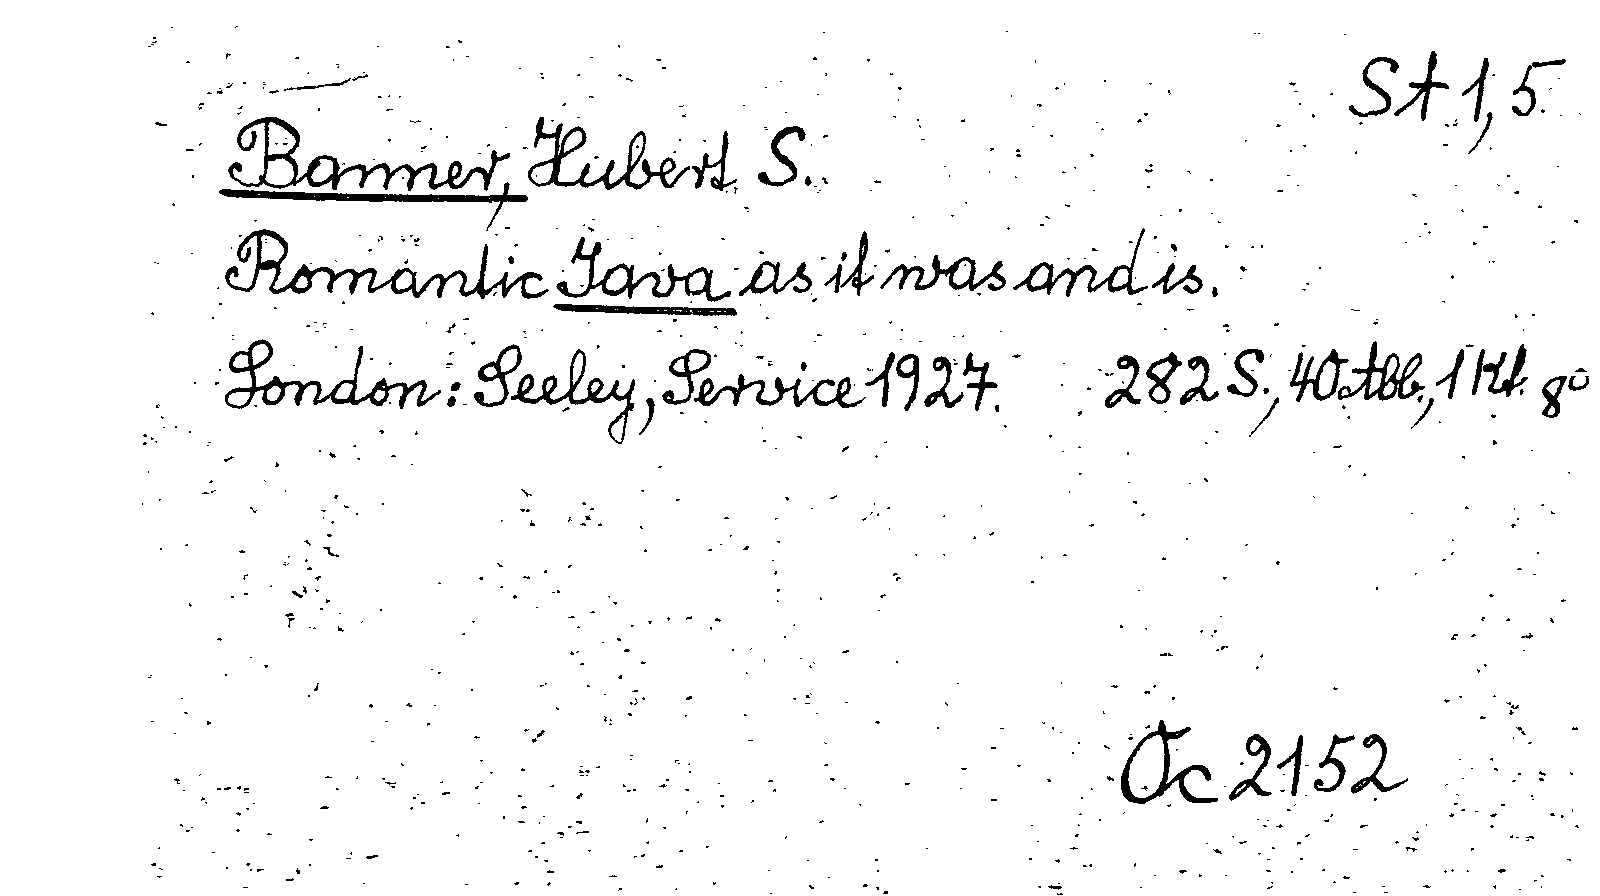 St 1,5
Banner, Hubert S.
Romantic Java as it was and is.
London: Seeley, Service 1927. 282 S., 40 Abb., 1 Kt. 8°
Oc 2152